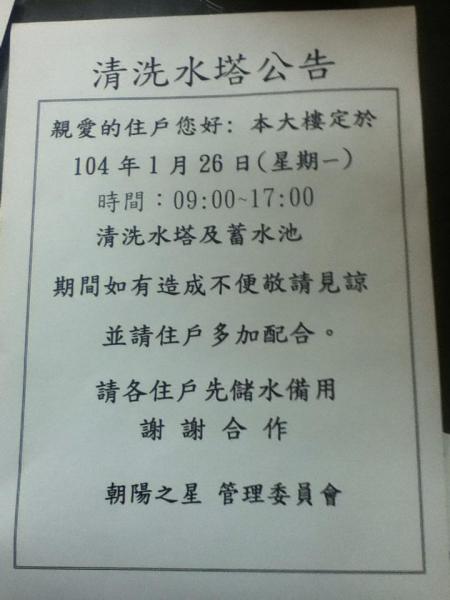 清洗水塔公告
親愛的住戶您好：本大樓定於
104 年 1 月 26 日（星期一）
時間：09:00~17:00
清洗水塔及蓄水池
期間如有造成不便敬請見諒
並請住戶多加配合。
請各住戶先儲水備用
謝 謝 合 作
朝陽之星 管理委員會